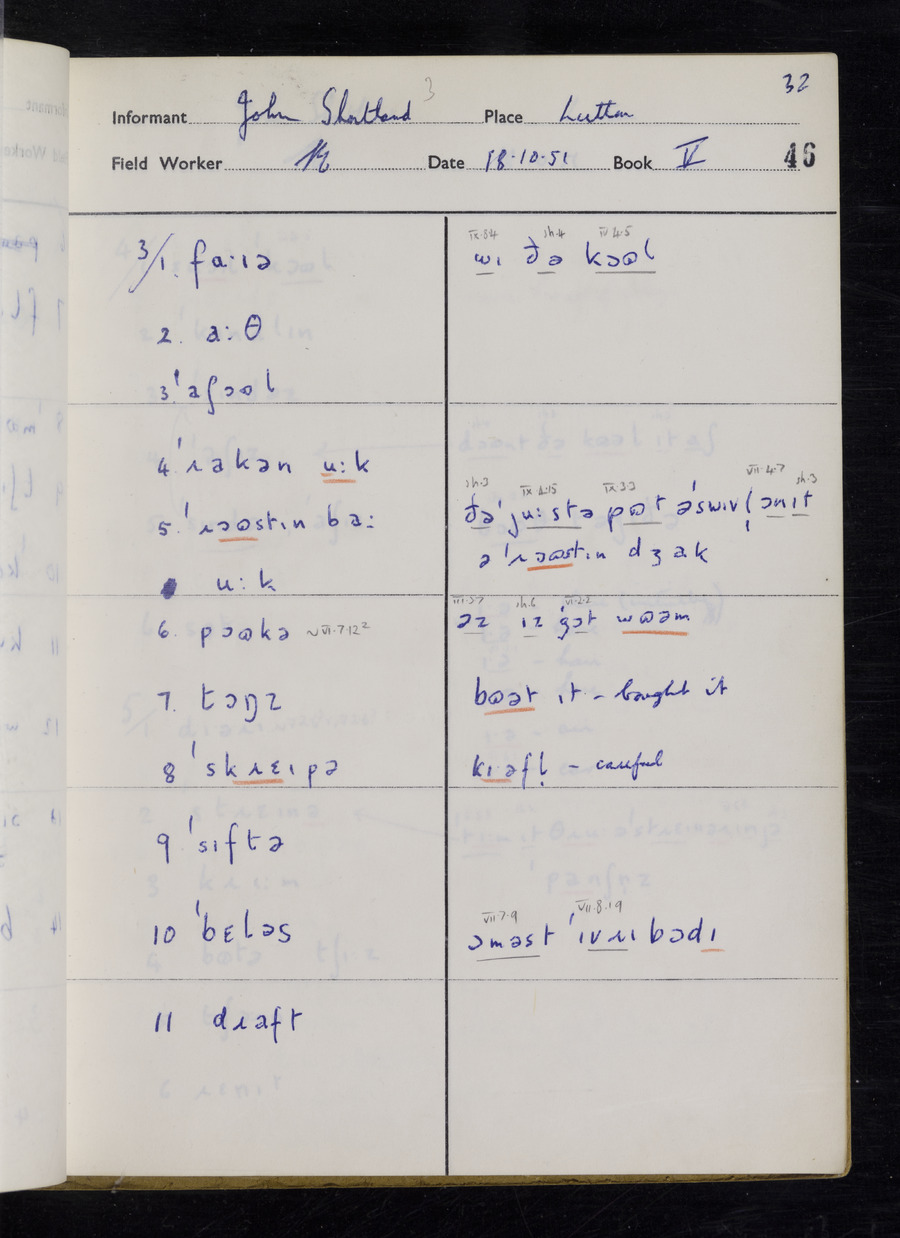 32
Informant John Shortland 3 Place Lutton
Field Worker Date 18·10·51 Book V 46
3/1. faːɪə
wɪ ðə kɔʊl
IX·8·4 sh.4 IV·4·5
2. aːθ
3 ˈaʃɔʊl
4 ˈɹakən uːk
5. ˈɹɔʊstɪn baː
sh.3 IX·4·15 IX·3·3 VII·4·7 sh.3
ðəˈjuːstə pʊt
əˈɹɔʊstɪn dʒak
uːk
6. pɔʊkə ~VI·7·12²
III·3·7 sh.6 VI·2·2
əz ɪz gɔt wʊəm
7. tɔŋz
bʊət ɪt – bought it
8 ˈskɹɛɪpə
kɪəfl̩ – careful
9 ˈsɪftə
10 ˈbɛləs
VII·7·9 VII·8·19
ɔməst ˈɪvɹɪbɔdɪ
11 dɹaft